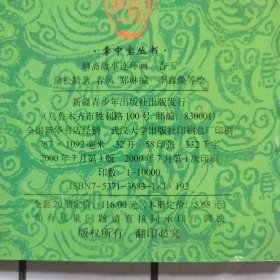 ·掌中宝丛书·
聊斋故事连环画 香玉
蒲松龄著 春风 郑琳编 李鑫焕等绘
新疆青少年出版社出版发行
(乌鲁木齐市胜利路100号 邮编:830001)
全国新华书店经销 武汉大学出版社印刷总厂印刷
787×1092毫米 32开 58印张 332千字
2000年7月第1版 2000年7月第1次印刷
印数:1-10000
ISBN7-5371-3683-1/I·193
全套20册定价:116.00元(本册定价:5.68元)
如有质量问题请直接同承印厂调换
版权所有 翻印必究